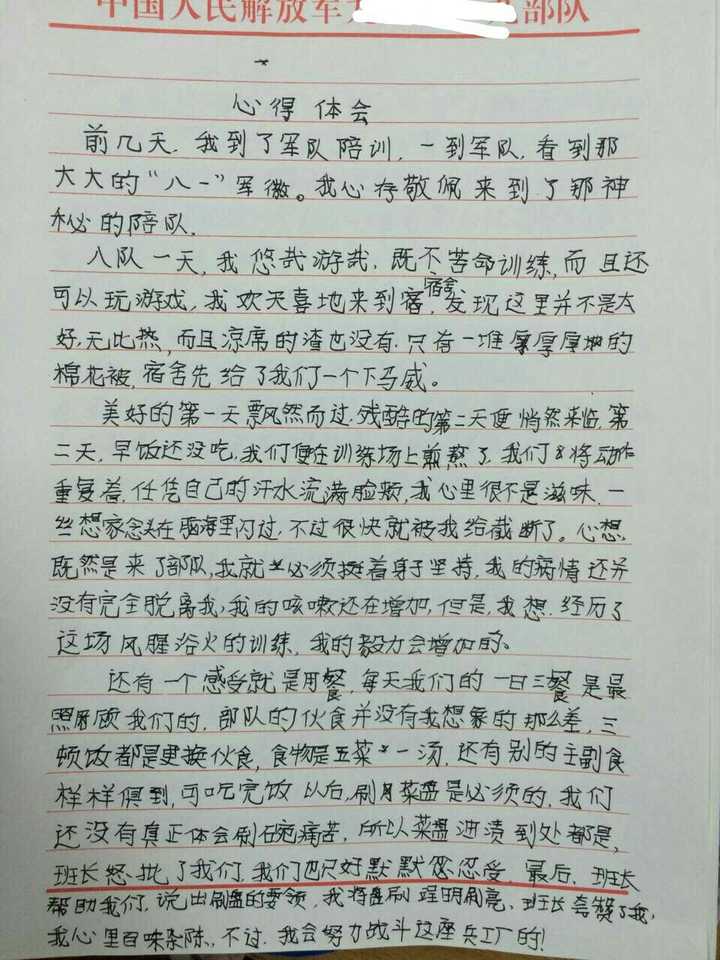 中国人民解放军 部队
心得体会
前几天,我到了军队陪训,一到军队,看到那
大大的“八一”军徽。我心存敬佩来到了那神
秘的陪队.
入队一天,我悠哉游哉,既不苦命训练,而且还
可以玩游戏,我欢天喜地来到宿宿舍,发现这里并不是太
好,无比热,而且凉席的渣也没有,只有一堆厚厚地的
棉花被,宿舍先给了我们一个下马威。
美好的第一天飘然而过,残酷的第二天便悄然来临,第
二天,早饭还没吃,我们便在训练场上煎熬了,我们将动作
重复着,任凭自己的汗水流满脸颊,我心里很不是滋味,一
丝想家念头在脑海里闪过,不过很快就被我给截断了。心想
既然是来了部队,我就必须挺着身子坚持,我的病情还并
没有完全脱离我,我的咳嗽还在增加,但是,我想,经历了
这场风腥浴火的训练,我的毅力会增加的。
还有一个感受就是用餐,每天我们的一日三餐是最
照顾我们的,部队的伙食并没有我想象的那么差,三
顿饭都是更换伙食,食物是五菜一汤,还有别的主副食
样样俱到,可吃完饭以后,刷月菜盘是必须的,我们
还没有真正体会刷碗痛苦,所以菜盘油渍到处都是,
班长怒批了我们,我们也只好默默忍受,最后,班长
帮助我们,说出刷盘的要领,我将盘刷锃明刷亮,班长夸赞了我,
我心里百味杂陈,不过,我会努力战斗这座兵工厂的!